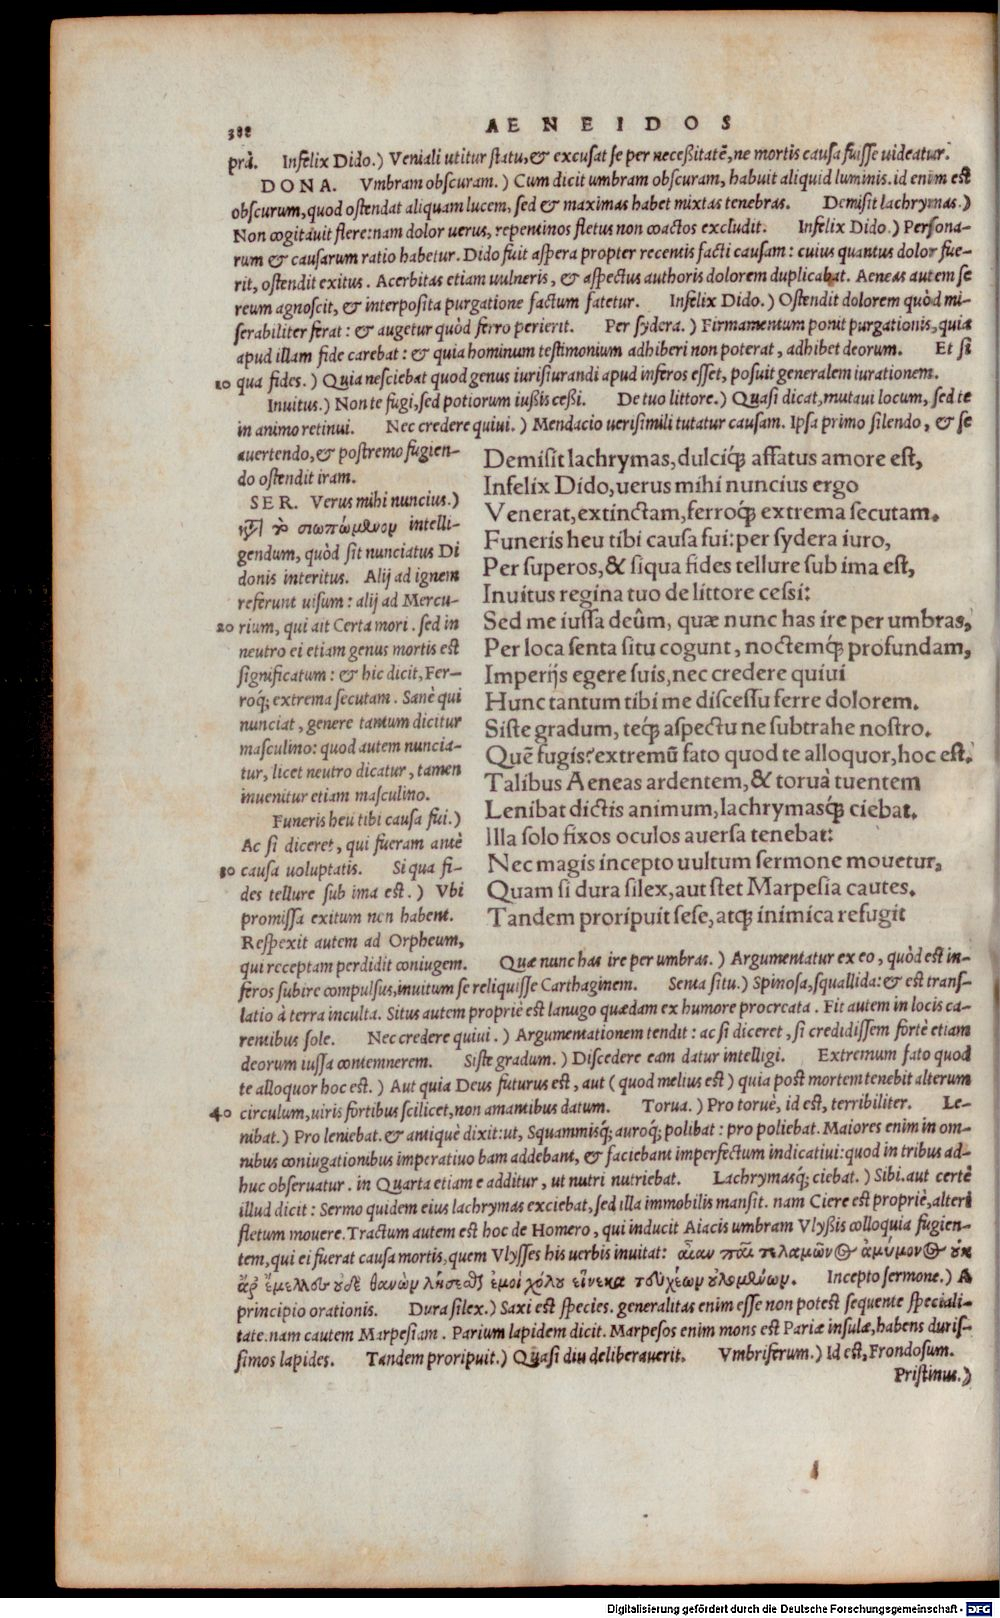 388
AENEIDOS
prà. Infelix Dido.) Veniali utitur statu, & excusat se per neceßitatẽ, ne mortis causa fuisse uideatur.
DONA. Vmbram obscuram.) Cum dicit umbram obscuram, habuit aliquid luminis. id enim est
obscurum, quod ostendat aliquam lucem, sed & maximas habet mixtas tenebras. Demisit lachrymas.)
Non cogitauit flere: nam dolor uerus, repentinos fletus non coactos excludit. Infelix Dido.) Persona-
rum & causarum ratio habetur. Dido fuit aspera propter recentis facti causam: cuius quantus dolor fue-
rit, ostendit exitus. Acerbitas etiam uulneris, & aspectus authoris dolorem duplicabat. Aeneas autem se
reum agnoscit, & interposita purgatione factum fatetur. Infelix Dido.) Ostendit dolorem quòd mi-
serabiliter ferat: & augetur quòd ferro perierit. Per sydera.) Firmamentum ponit purgationis, quia
apud illam fide carebat: & quia hominum testimonium adhiberi non poterat, adhibet deorum. Et si
10 qua fides.) Quia nesciebat quod genus iurisiurandi apud inferos esset, posuit generalem iurationem.
Inuitus.) Non te fugi, sed potiorum iußis ceßi. De tuo littore.) Quasi dicat, mutaui locum, sed te
in animo retinui. Nec credere quiui.) Mendacio uerisimili tutatur causam. Ipsa primo silendo, & se
auertendo, & postremo fugien-
do ostendit iram.
SER. Verus mihi nuncius.)
κỳ τὸ σιωπώμενον intelli-
gendum, quòd sit nunciatus Di
donis interitus. Alij ad ignem
referunt uisum: alij ad Mercu-
20 rium, qui ait Certa mori. sed in
neutro ei etiam genus mortis est
significatum: & hic dicit, Fer-
roq́; extrema secutam. Sanè qui
nunciat, genere tantum dicitur
masculino: quod autem nuncia-
tur, licet neutro dicatur, tamen
inuenitur etiam masculino.
Funeris heu tibi causa fui.)
Ac si diceret, qui fueram antè
30 causa uoluptatis. Si qua fi-
des tellure sub ima est.) Vbi
promissa exitum non habent.
Respexit autem ad Orpheum,
Demisit lachrymas, dulciq́; affatus amore est,
Infelix Dido, uerus mihi nuncius ergo
Venerat, extinctam, ferroq́; extrema secutam.
Funeris heu tibi causa fui: per sydera iuro,
Per superos, & siqua fides tellure sub ima est,
Inuitus regina tuo de littore cessi:
Sed me iussa deûm, quæ nunc has ire per umbras,
Per loca senta situ cogunt, noctemq́; profundam,
Imperijs egere suis, nec credere quiui
Hunc tantum tibi me discessu ferre dolorem.
Siste gradum, teq́; aspectu ne subtrahe nostro.
Quẽ fugis? extremũ fato quod te alloquor, hoc est.
Talibus Aeneas ardentem, & toruà tuentem
Lenibat dictis animum, lachrymasq́; ciebat.
Illa solo fixos oculos auersa tenebat:
Nec magis incepto uultum sermone mouetur,
Quam si dura silex, aut stet Marpesia cautes.
Tandem proripuit sese, atq; inimica refugit
qui receptam perdidit coniugem. Quæ nunc has ire per umbras.) Argumentatur ex eo, quòd est in-
feros subire compulsus, inuitum se reliquisse Carthaginem. Senta situ.) Spinosa, squallida: & est trans-
latio à terra inculta. Situs autem propriè est lanugo quædam ex humore procreata. Fit autem in locis ca-
rentibus sole. Nec credere quiui.) Argumentationem tendit: ac si diceret, si credidissem fortè etiam
deorum iussa contemnerem. Siste gradum.) Discedere eam datur intelligi. Extremum fato quod
te alloquor hoc est.) Aut quia Deus futurus est, aut (quod melius est) quia post mortem tenebit alterum
40 circulum, uiris fortibus scilicet, non amantibus datum. Torua.) Pro toruè, id est, terribiliter. Le-
nibat.) Pro leniebat. & antiquè dixit: ut, Squammisq́; auroq́; polibat: pro poliebat. Maiores enim in om-
nibus coniugationibus imperatiuo bam addebant, & faciebant imperfectum indicatiui: quod in tribus ad-
huc obseruatur. in Quarta etiam e additur, ut nutri nutriebat. Lachrymasq́; ciebat.) Sibi. aut certè
illud dicit: Sermo quidem eius lachrymas exciebat, sed illa immobilis mansit. nam Ciere est propriè, alteri
fletum mouere. Tractum autem est hoc de Homero, qui inducit Aiacis umbram Vlyßis colloquia fugien-
tem, qui ei fuerat causa mortis, quem Vlysses his uerbis inuitat: αἶαν παῖ τελαμῶνος ἀμύμονος οὐκ
ἄρ᾽ ἔμελλον οὐδὲ θανὼν λήσεσθαι ἐμοὶ χόλου εἵνεκα τευχέων οὐλομένων. Incepto sermone.) A
principio orationis. Dura silex.) Saxi est species. generalitas enim esse non potest sequente speciali-
tate. nam cautem Marpesiam. Parium lapidem dicit. Marpesos enim mons est Pariæ insulæ, habens duris-
simos lapides. Tandem proripuit.) Quasi diu deliberauerit. Vmbriferum.) Id est, Frondosum.
Pristinus.)
Digitalisierung gefördert durch die Deutsche Forschungsgemeinschaft - DFG